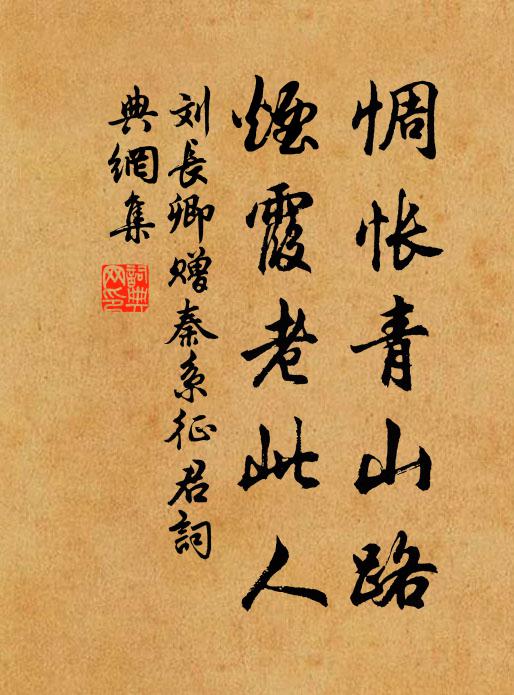 惆怅青山路
煙霞老此人
刘長卿赠秦系征君詞
典網集
詞典网印